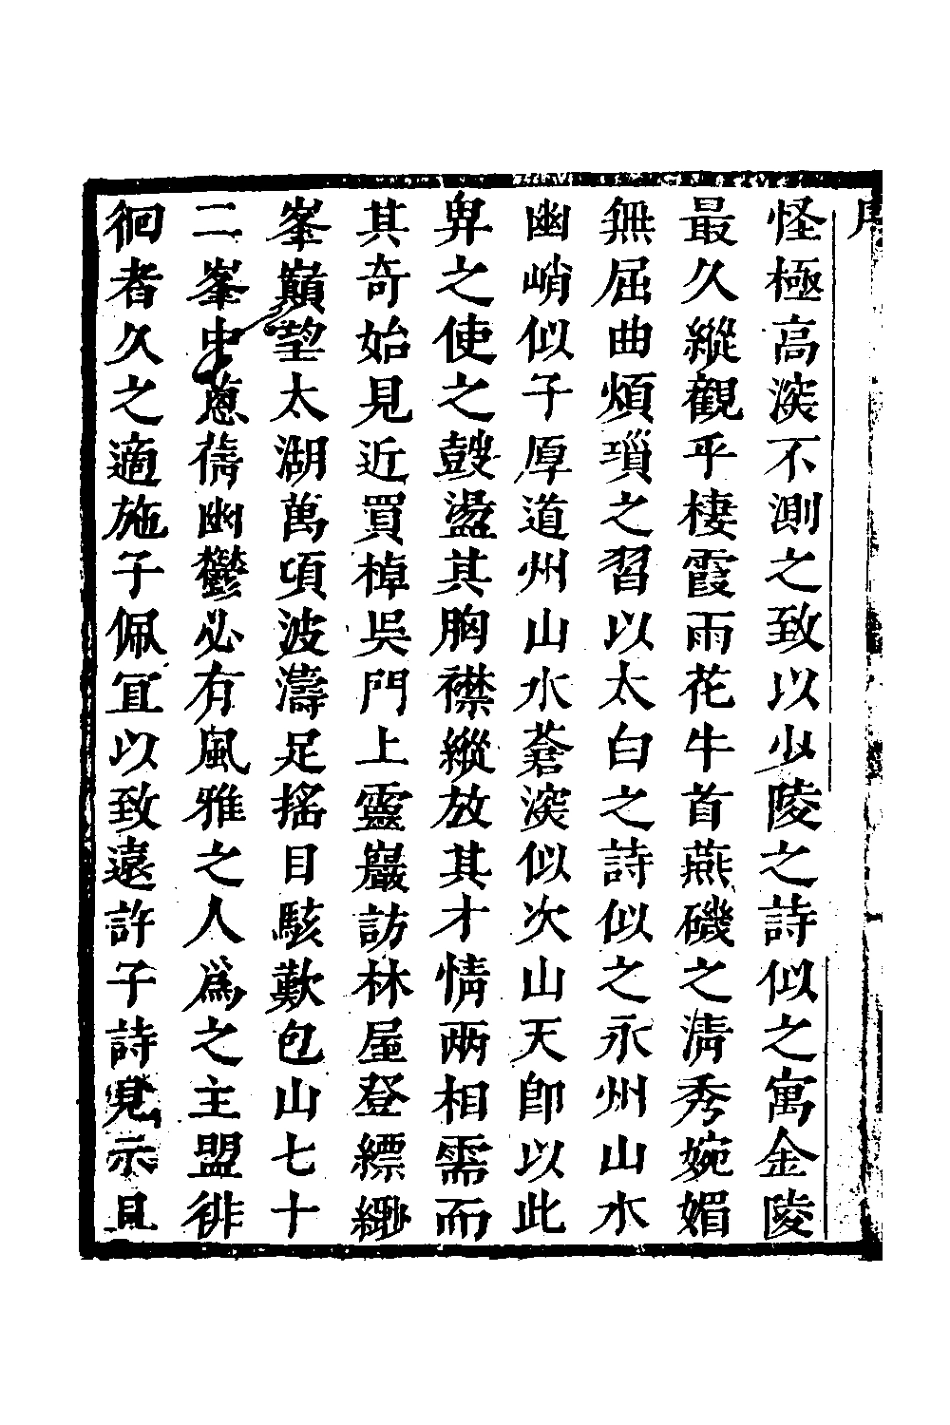 怪極高深不測之致以少陵之詩似之寓金陵
最久縱觀乎棲霞雨花牛首燕磯之清秀婉媚
無屈曲煩瑣之習以太白之詩似之永州山水
幽峭似子厚道州山水蒼深似次山天卽以此
畀之使之鼓盪其胸襟縱放其才情兩相需而
其奇始見近買棹吳門上靈巖訪林屋登縹緲
峯巔望太湖萬頃波濤足搖目駭歎包山七十
二峯中蔥蒨幽鬱必有風雅之人爲之主盟徘
徊者久之適施子佩宜以致遠許子詩見示且